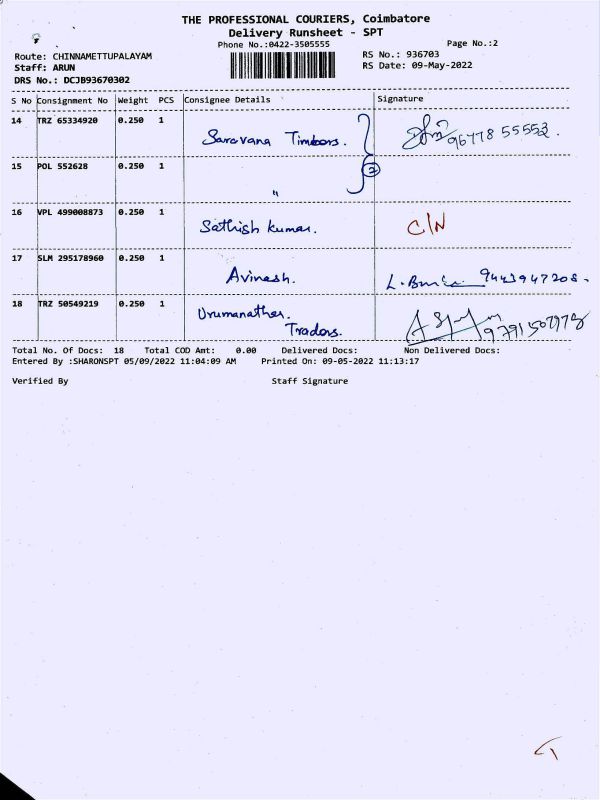 THE PROFESSIONAL COURIERS, Coimbatore
Delivery Runsheet - SPT
Phone No.:0422-3505555
Page No.:2
Route: CHINNAMETTUPALAYAM
RS No.: 936703
Staff: ARUN
RS Date: 09-May-2022
DRS No.: DCJB93670302
S No Consignment No Weight PCS Consignee Details Signature
14 TRZ 65334920 0.250 1 Saravana Timbers. 96778 55552.
15 POL 552628 0.250 1 " 2
16 VPL 499008873 0.250 1 Sathish kumar. C/N
17 SLM 295178960 0.250 1 Avinash. 9443947208.
18 TRZ 50549219 0.250 1 Urumanathar.
Tradors.
Total No. Of Docs: 18 Total COD Amt: 0.00 Delivered Docs: Non Delivered Docs:
Entered By :SHARONSPT 05/09/2022 11:04:09 AM Printed On: 09-05-2022 11:13:17
Verified By Staff Signature